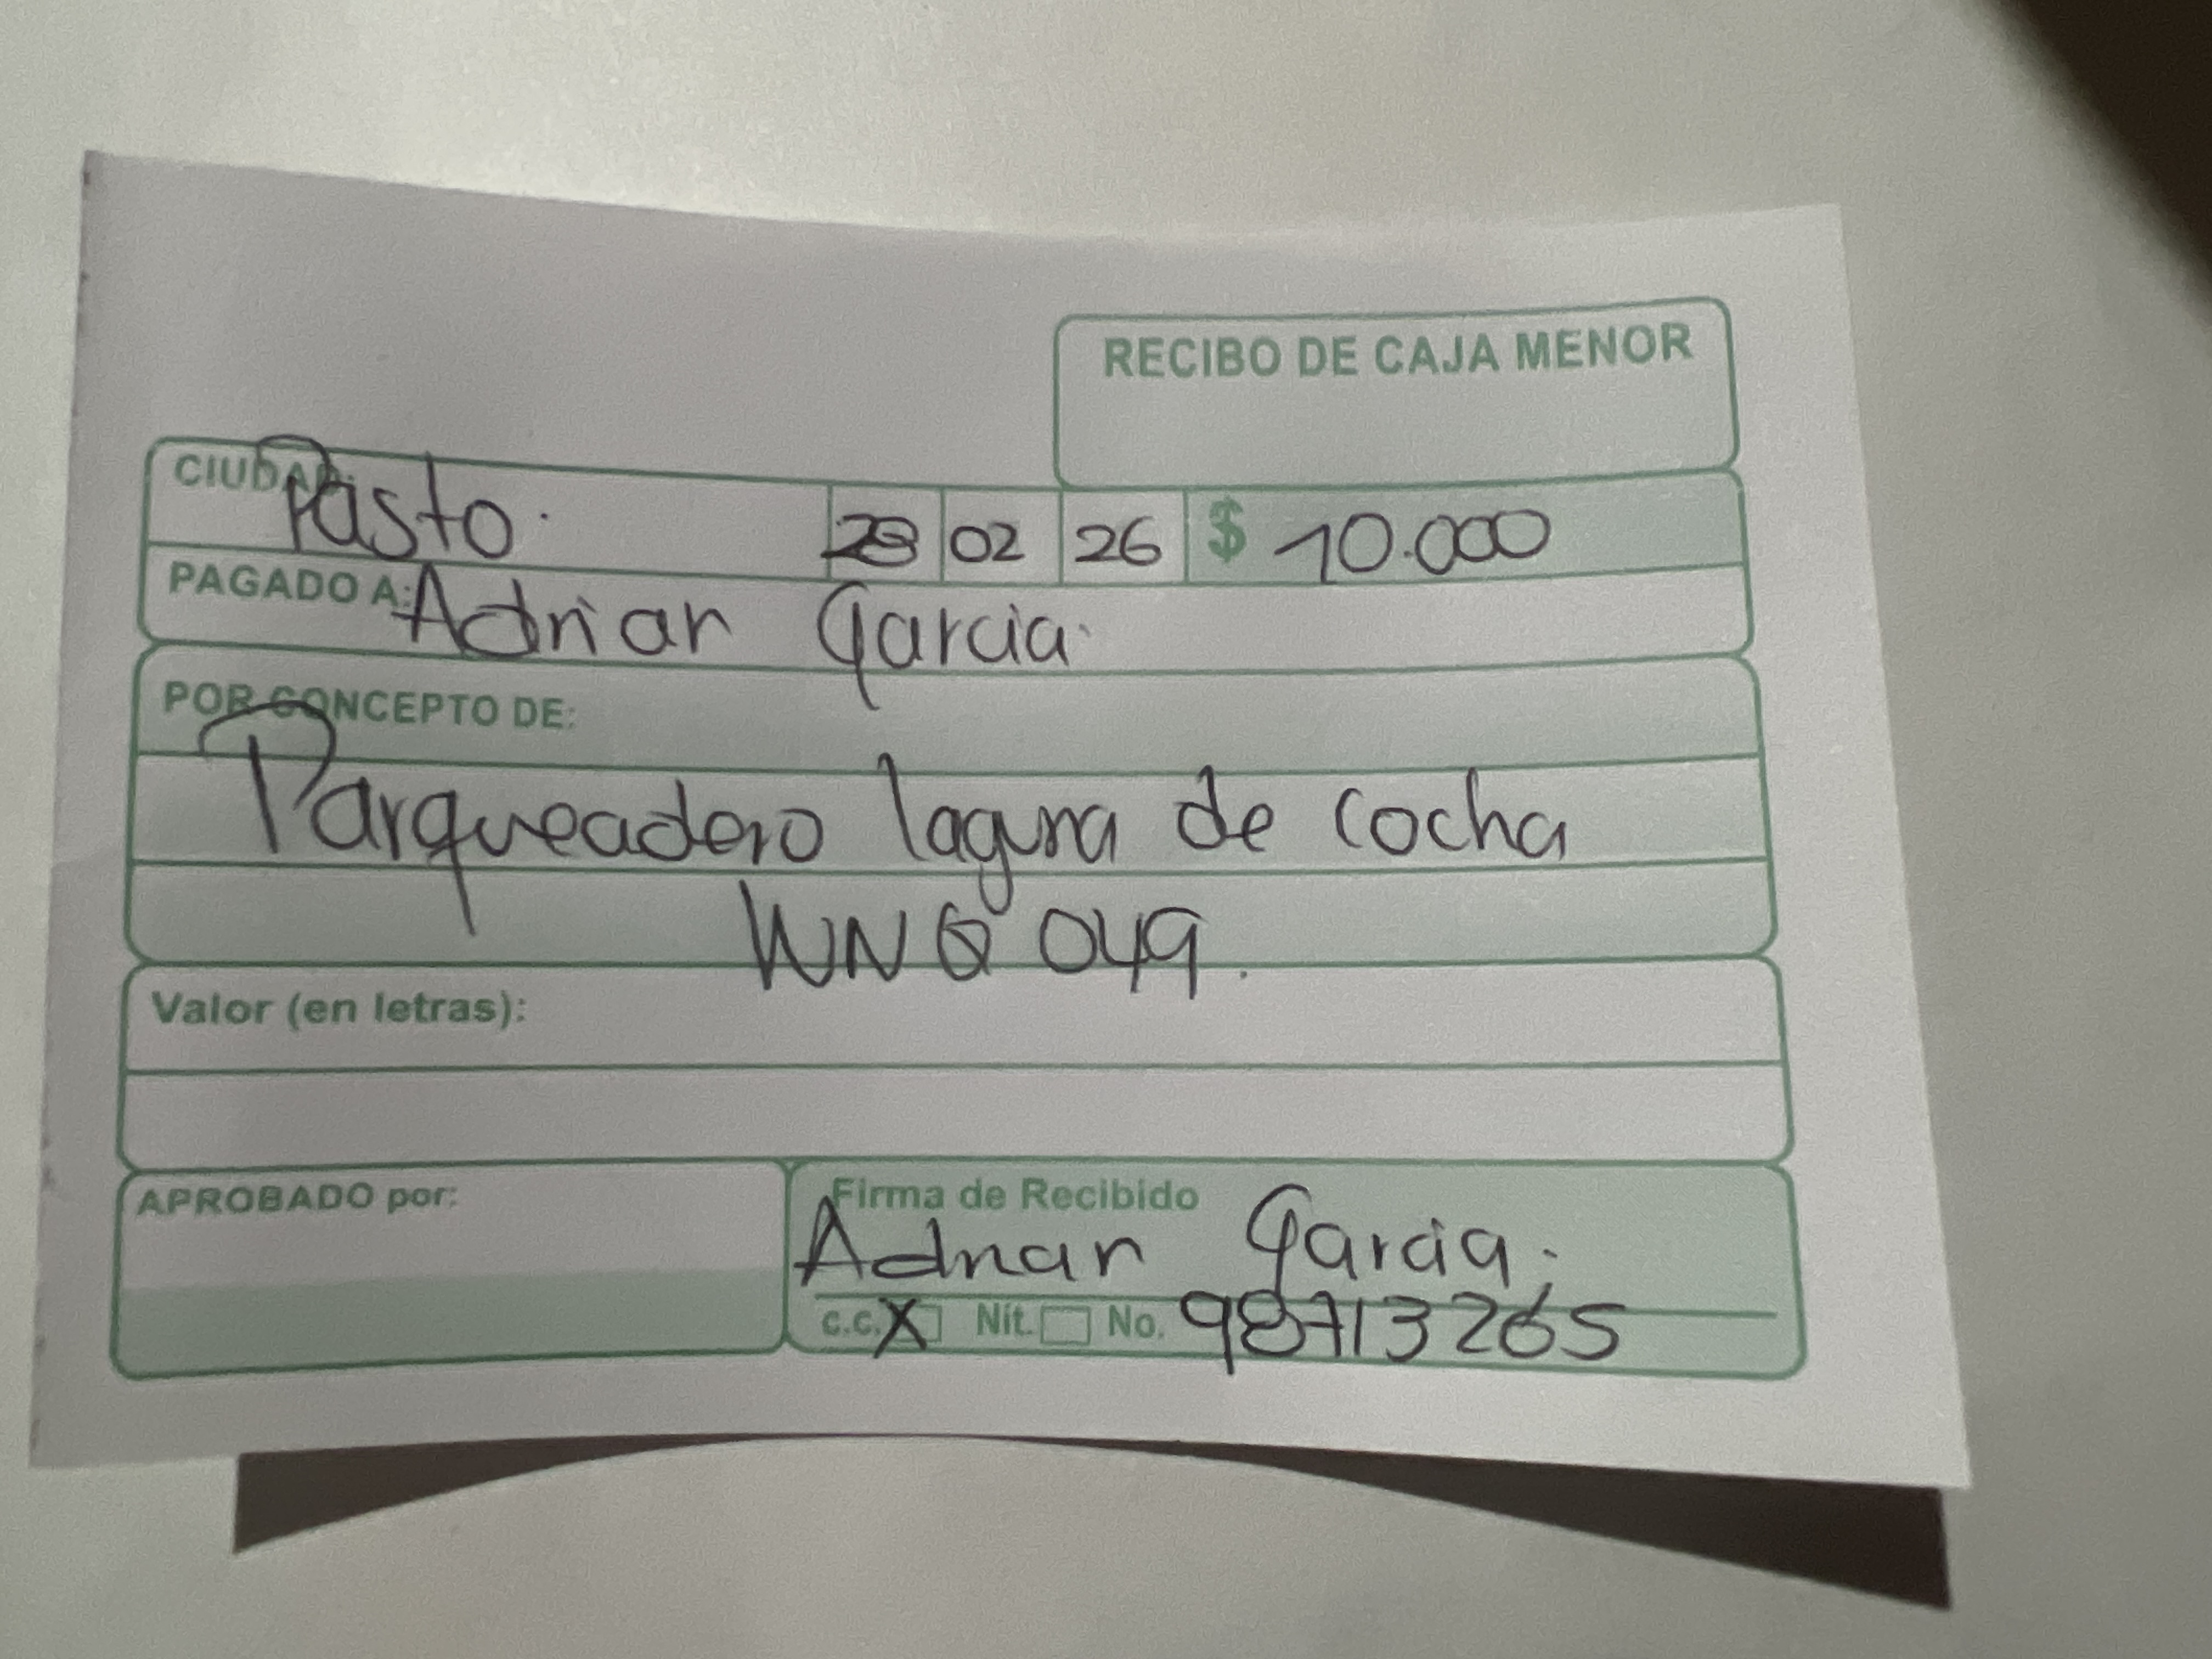 RECIBO DE CAJA MENOR
CIUDAD: Pasto. 28 02 26 $ 10.000
PAGADO A: Adrian Garcia.
POR CONCEPTO DE:
Parqueadero laguna de cocha
WNQ 049.
Valor (en letras):
APROBADO por:
Firma de Recibido
Adrian Garcia.
c.c. X Nit. No. 98713265